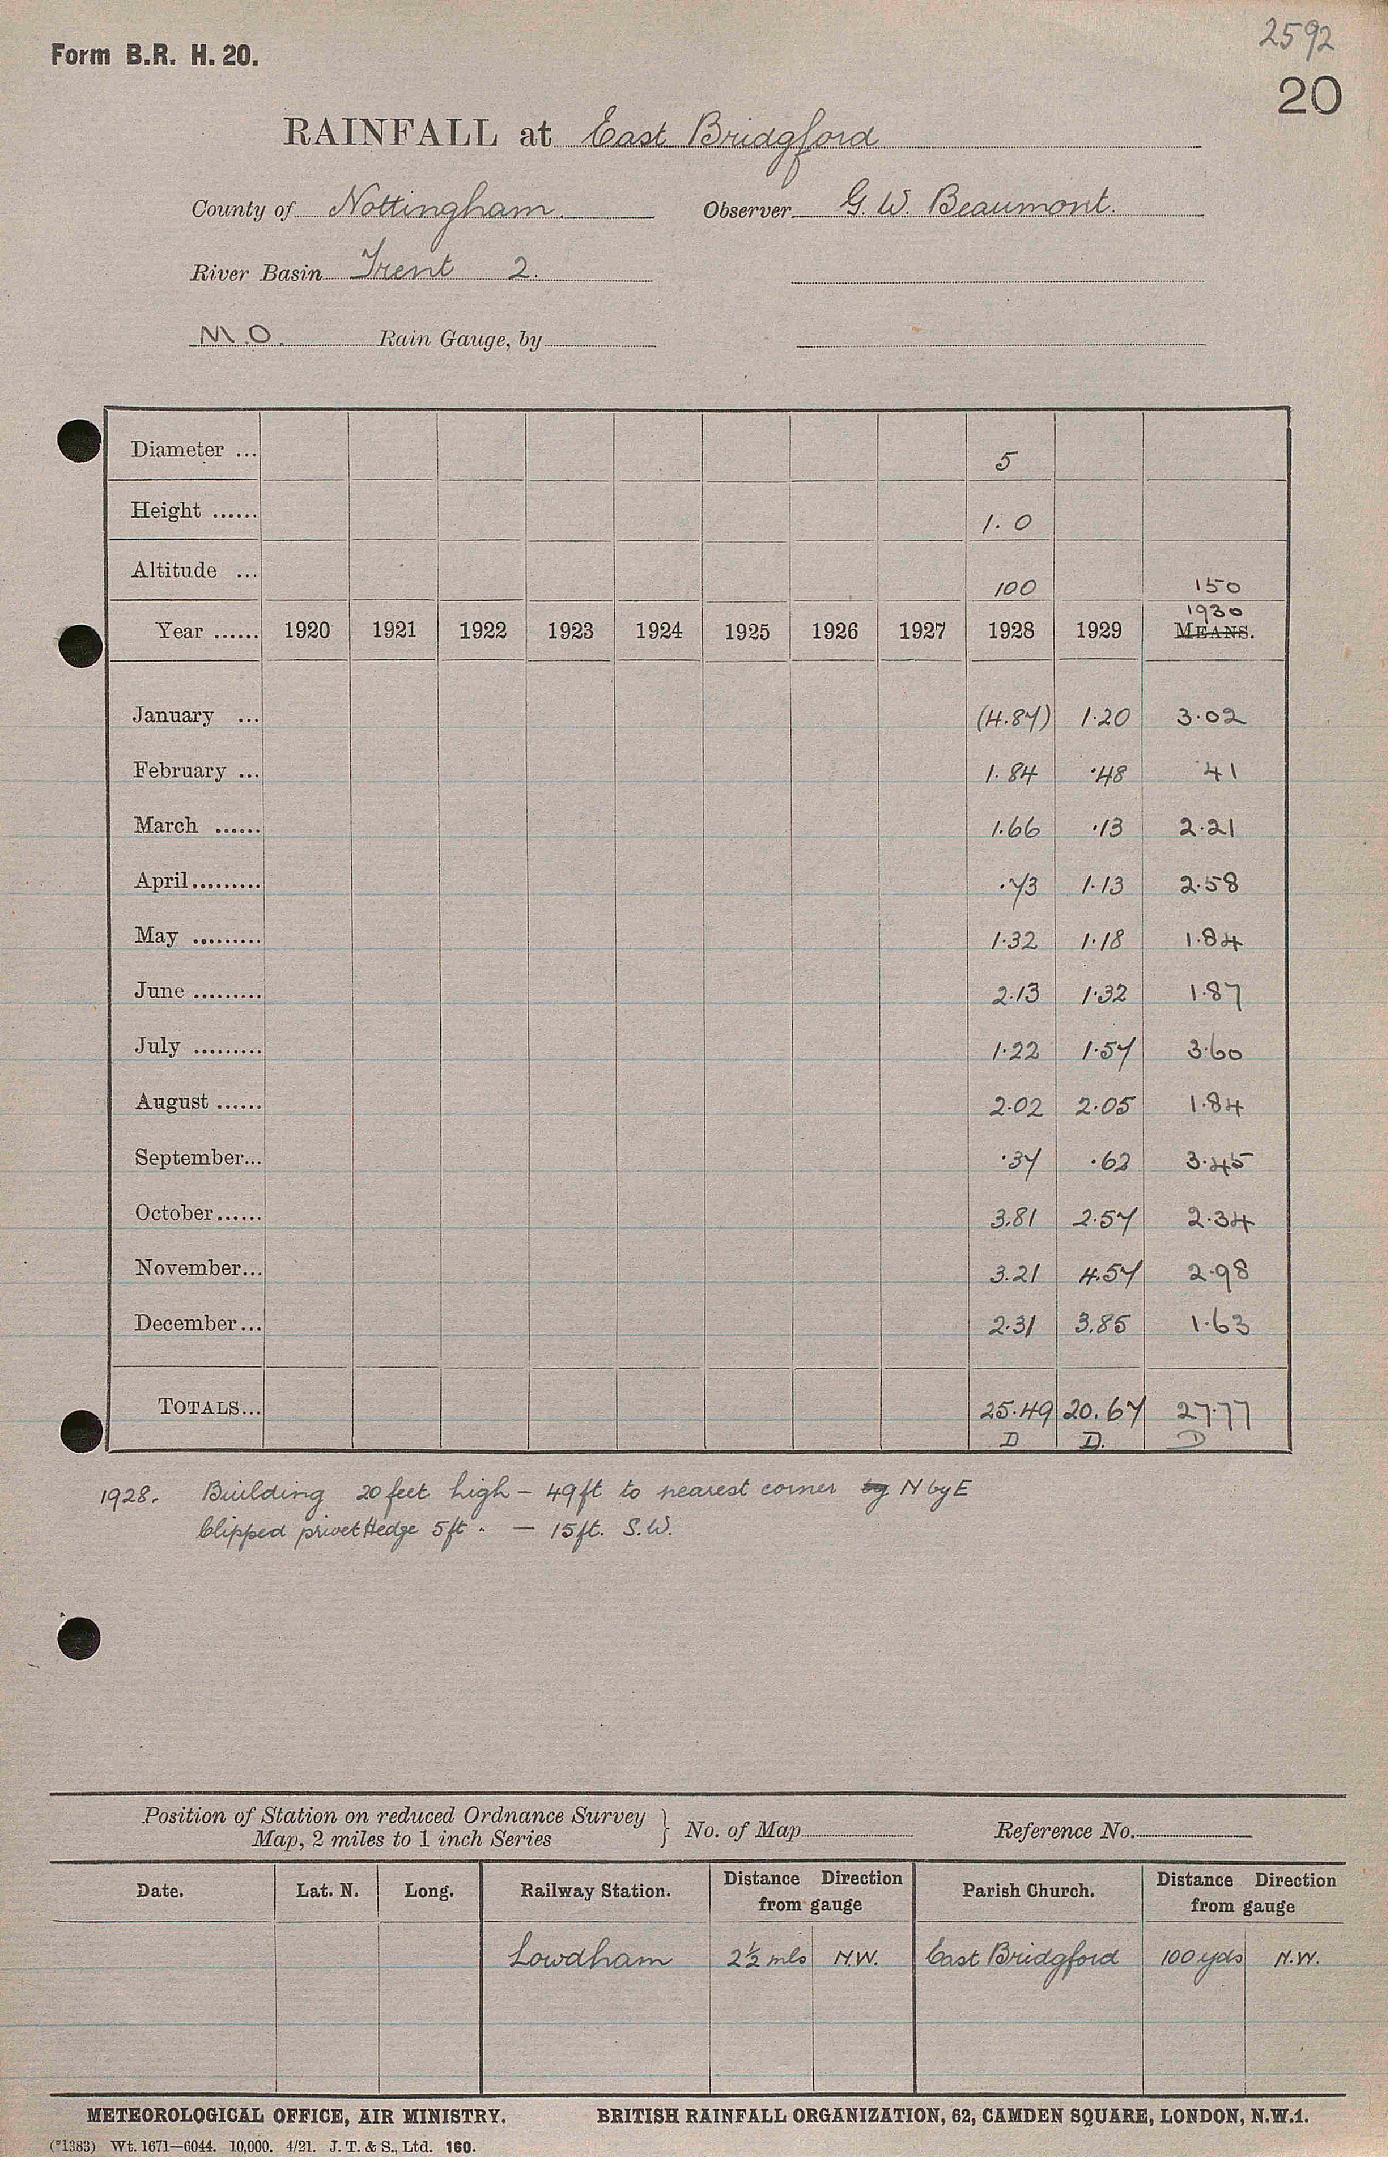 2592
Form B.R. H. 20.
20
RAINFALL at East Bridgford
County of Nottingham. Observer G. W. Beaumont.
River Basin Trent 2.
M.O. Rain Gauge, by
Diameter ... 5
Height ...... 1.0
Altitude ... 100 150
1930
Year ...... 1920 1921 1922 1923 1924 1925 1926 1927 1928 1929 MEANS.
January ... (4.87) 1.20 3.02
February ... 1.84 .48 .41
March ...... 1.66 .13 2.21
April......... .73 1.13 2.58
May ......... 1.32 1.18 1.84
June ......... 2.13 1.32 1.87
July ......... 1.22 1.57 3.60
August ...... 2.02 2.05 1.84
September... .37 .62 3.45
October...... 3.81 2.57 2.34
November... 3.21 4.57 2.98
December... 2.31 3.85 1.63
TOTALS... 25.49 20.67 27.77
D D. D
1928. Building 20 feet high – 49ft to nearest corner by N by E
Clipped privet Hedge 5ft. – 15ft. S.W.
Position of Station on reduced Ordnance Survey
Map, 2 miles to 1 inch Series } No. of Map Reference No.
Date. Lat. N. Long. Railway Station. Distance Direction from gauge Parish Church. Distance Direction from gauge
Lowdham 2½ mls N.W. East Bridgford 100 yds N.W.
METEOROLOGICAL OFFICE, AIR MINISTRY. BRITISH RAINFALL ORGANIZATION, 62, CAMDEN SQUARE, LONDON, N.W.1.
(*1383) Wt. 1671—6044. 10,000. 4/21. J. T. & S., Ltd. 160.